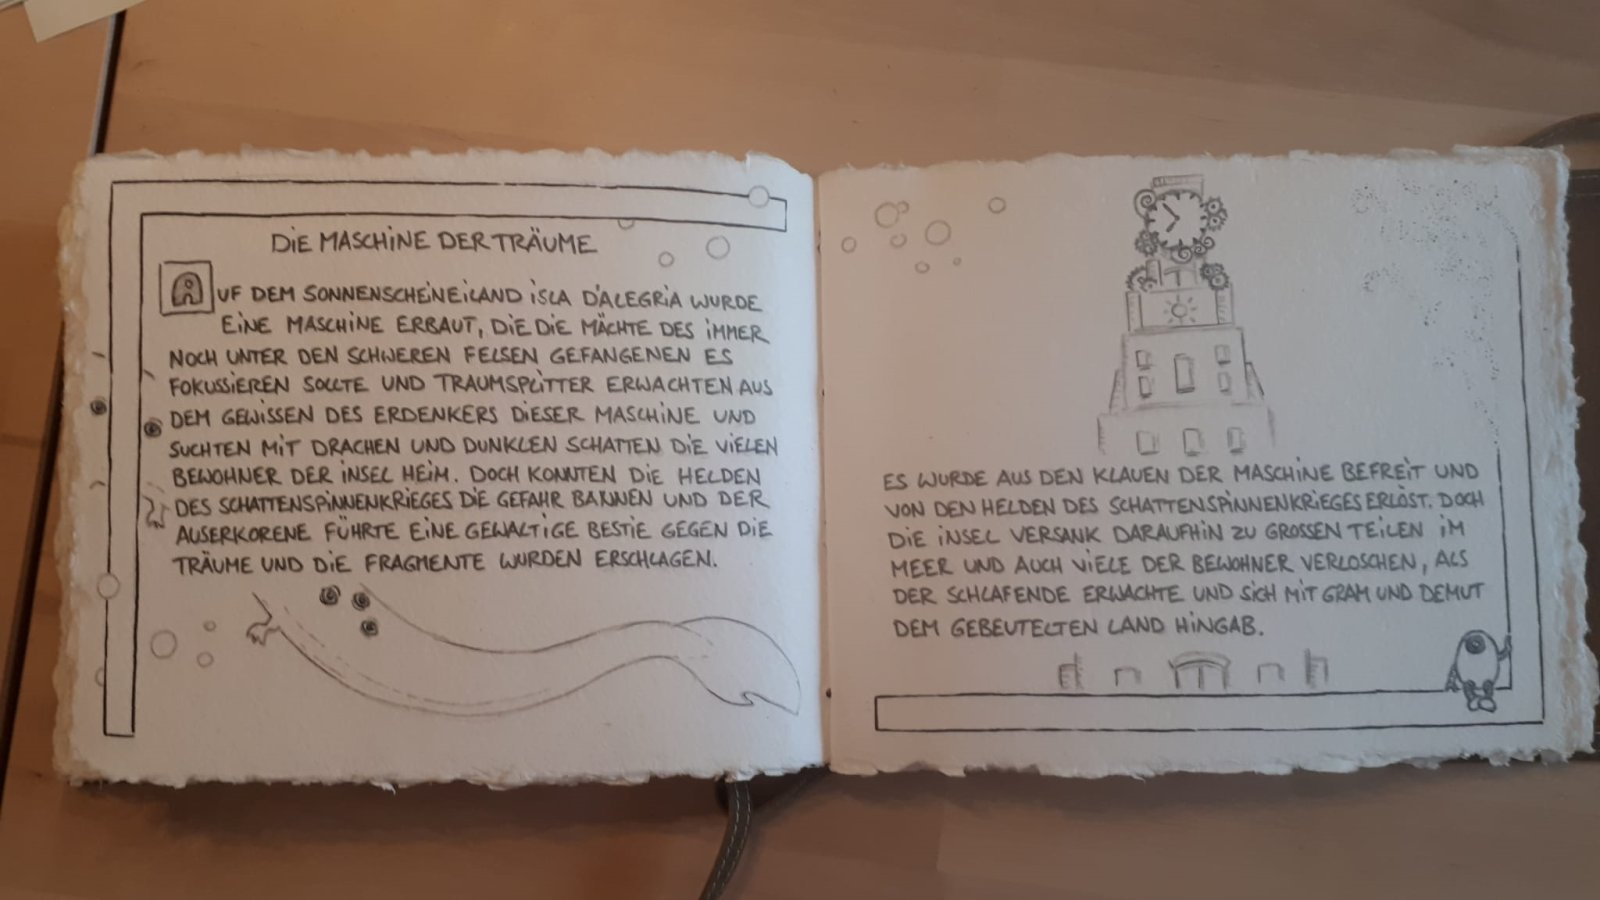 DIE MASCHINE DER TRÄUME
AUF DEM SONNENSCHEINEILAND ISLA D'ALEGRIA WURDE
EINE MASCHINE ERBAUT, DIE DIE MÄCHTE DES IMMER
NOCH UNTER DEN SCHWEREN FELSEN GEFANGENEN ES
FOKUSSIEREN SOLLTE UND TRAUMSPLITTER ERWACHTEN AUS
DEM GEWISSEN DES ERDENKERS DIESER MASCHINE UND
SUCHTEN MIT DRACHEN UND DUNKLEN SCHATTEN DIE VIELEN
BEWOHNER DER INSEL HEIM. DOCH KONNTEN DIE HELDEN
DES SCHATTENSPINNENKRIEGES DIE GEFAHR BANNEN UND DER
AUSERKORENE FÜHRTE EINE GEWALTIGE BESTIE GEGEN DIE
TRÄUME UND DIE FRAGMENTE WURDEN ERSCHLAGEN.
ES WURDE AUS DEN KLAUEN DER MASCHINE BEFREIT UND
VON DEN HELDEN DES SCHATTENSPINNENKRIEGES ERLÖST. DOCH
DIE INSEL VERSANK DARAUFHIN ZU GROSSEN TEILEN IM
MEER UND AUCH VIELE DER BEWOHNER VERLOSCHEN, ALS
DER SCHLAFENDE ERWACHTE UND SICH MIT GRAM UND DEMUT
DEM GEBEUTELTEN LAND HINGAB.